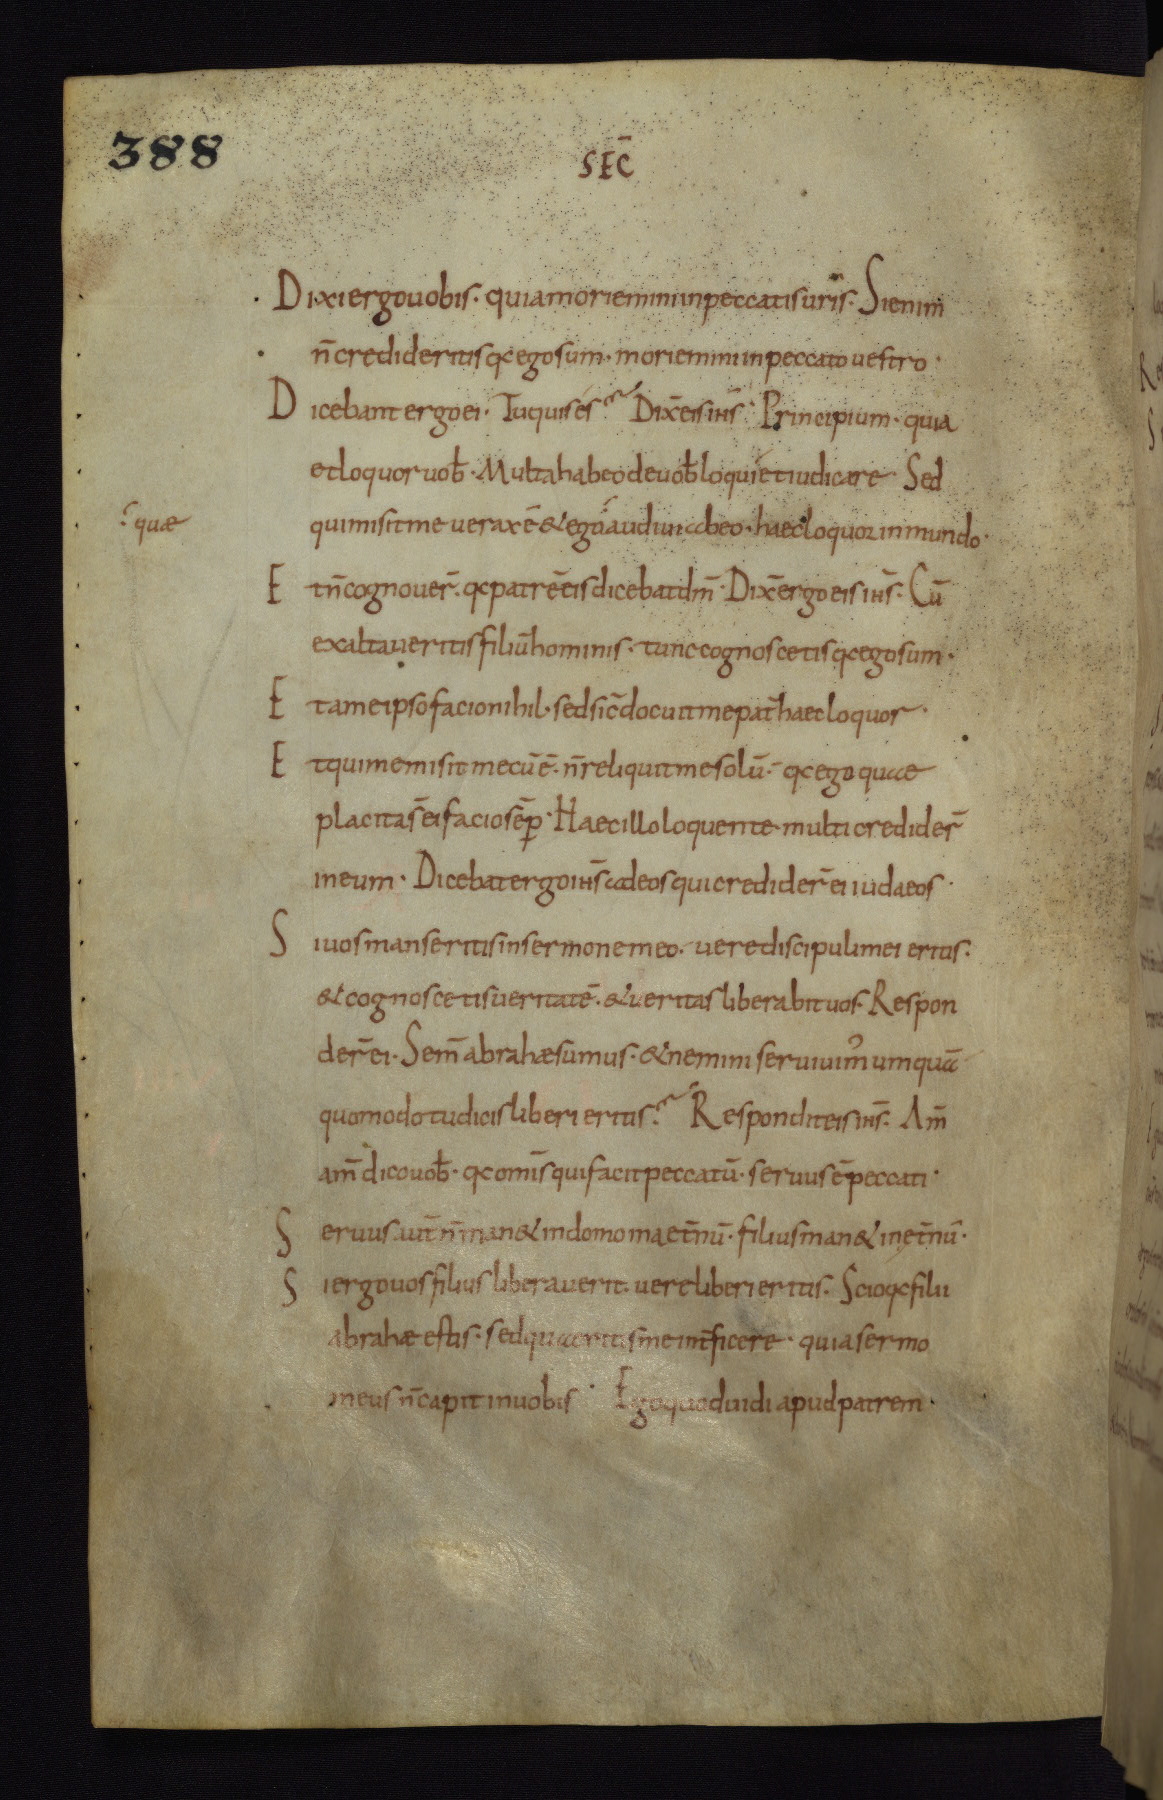 388
SEC̄
Dixi ergo uobis · quia moriemini in peccatis ur̄is · Si enim
n̄ credideritis qc ego sum · moriemini in peccato uestro ·
Dicebant ergo ei · Tu quis és? Dix̄ eis ih̄s · Principium · quia
et loquor uob̄ · Multa habeo de uob̄ loqui et iudicare Sed
qui misit me uerax ē & ego audiui ab eo · haec loquor in mundo ·
quæ
Et n̄ cognouer̄ · qc patrē eis dicebat dm̄ · Dix̄ ergo eis ih̄s · Cū
exaltaueritis filiū hominis · tunc cognoscetis qc ego sum ·
Et a me ipso facio nihil · sed sic̄ docuit me pat̄ haec loquor ·
Et qui me misit mecū ē · n̄ reliquit me solū · qc ego quae
placita s̄ ei facio sēp · Haec illo loquente · multi credider̄
in eum · Dicebat ergo ih̄s ad eos qui credider̄ ei iudaeos ·
Si uos manseritis in sermone meo · uere discipuli mei eritis ·
& cognoscetis ueritatē · & ueritas liberabit uos · Respon
der̄ ei · Sem̄ abrahæ sumus · & nemini seruiuim᾽ umquā
quomodo tu dicis liberi eritis? Respondit eis ih̄s · Am̄
am̄ dico uob̄ · qc om̄is qui facit peccatū · seruus ē peccati ·
Seruus aut̄ n̄ man& in domo in aet̄nū · filius man& in et̄nū ·
Si ergo uos filius liberauerit · uere liberi eritis · Scio qc filii
abrahæ estis · sed quaeritis me int̄ficere · quia sermo
meus n̄ capit in uobis · Ego quod uidi apud patrem ·